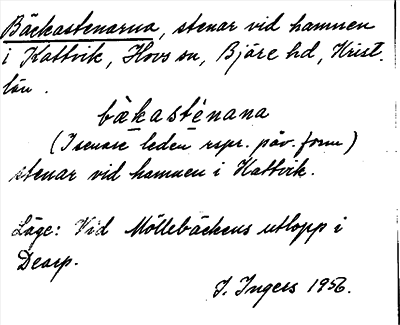 Bäckastenarna, stenar vid hamnen
i Kattvik, Hovs sn, Bjäre hd, Krist.
län.
bækasténana
(I senare leden rspr. påv. form)
stenar vid hamnen i Kattvik.
Läge: Vid Möllebäckens utlopp i
I. Ingers 1956.